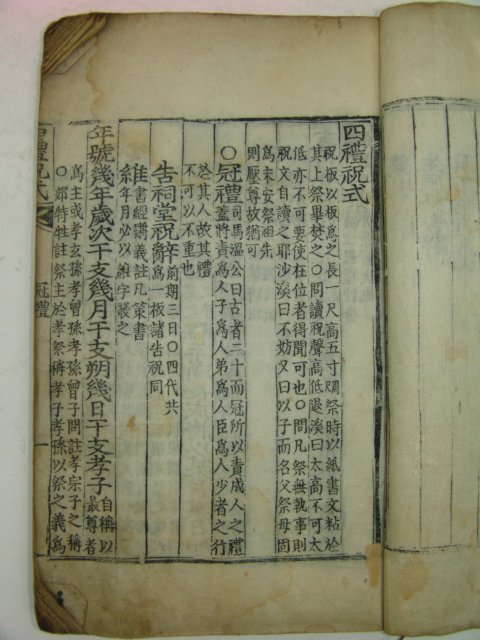 四禮祝式
祝板以板爲之長一尺高五寸周祭時以紙書文粘於
其上祭畢焚之○問讀祝聲高低退溪曰太高不可太
低亦不可要使在位者得聞可也○問凡祭無執事則
祝文自讀之耶沙溪曰不妨又曰以子而名父祭毋固
爲未安祭祖先
則壓尊故猶可
○冠禮司馬溫公曰古者二十而冠所以責成人之禮
蓋將責爲人子爲人弟爲人臣爲人少者之行
於其人故其禮
不可以不重也
告祠堂祝辭前期三日○四代共
爲一板諸告祝同
維書經蔡義註凡策書
年月必以維字發之
年號幾年歲次干支幾月干支朔幾日干支孝子自稱以
最尊者
爲主或孝玄孫孝曾孫孝孫曾子問註孝宗子之稱
○郊特牲註祭主於孝祭稱孝子孝孫以祭之義爲
四禮祝式
冠禮
一